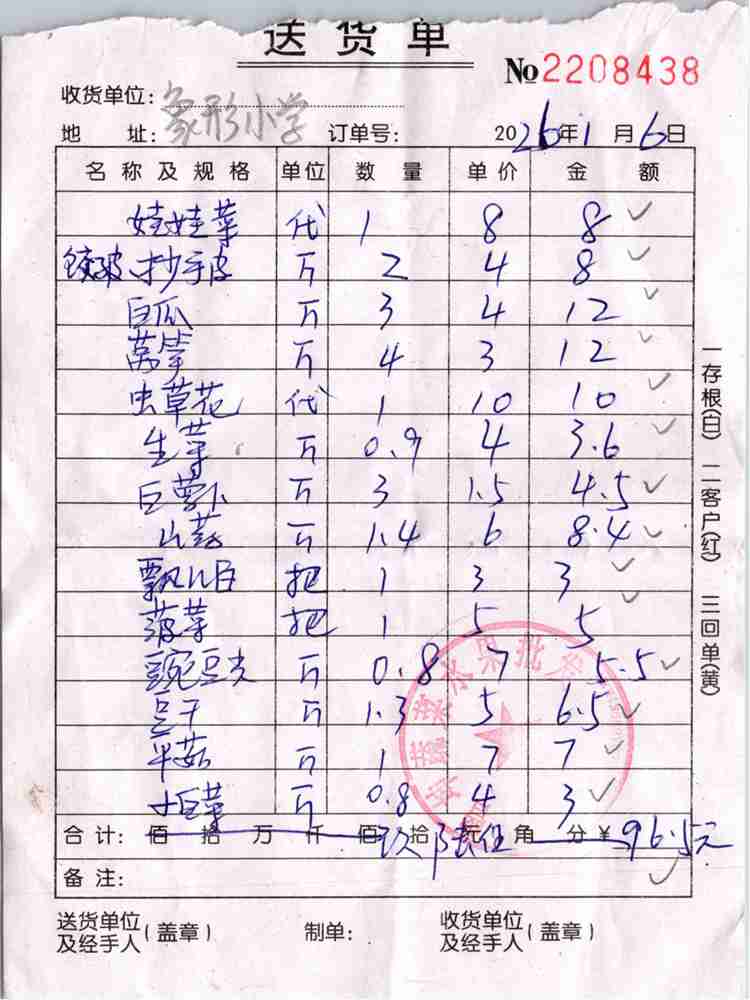 送货单
No 2208438
收货单位：
地 址： 象形小学 订单号： 2026年1月6日
名称及规格 单位 数量 单价 金额
娃娃菜 代 1 8 8
抄手皮 斤 2 4 8
白瓜 斤 3 4 12
莴笋 斤 4 3 12
虫草花 代 1 10 10
生菜 斤 0.9 4 3.6
白萝卜 斤 3 1.5 4.5
山药 斤 1.4 6 8.4
瓢儿白 把 1 3 3
菠菜 把 1 5 5
豌豆尖 斤 0.8 7 5.5
豆干 斤 1.3 5 6.5
平菇 斤 1 7 7
小白菜 斤 0.8 4 3
合计： 佰 拾 万 仟 佰 玖拾陆元伍角 分 ¥96.5元
备注：
送货单位及经手人（盖章） 制单： 收货单位及经手人（盖章）
一存根(白) 二客户(红) 三回单(黄)
蔬菜水果批发